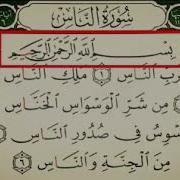 سُورَةُ النَّاسِ
بِسْمِ اللَّهِ الرَّحْمَٰنِ الرَّحِيمِ
رَبِّ النَّاسِ ١ مَلِكِ النَّاسِ
مِن شَرِّ الْوَسْوَاسِ الْخَنَّاسِ
سْوِسُ فِي صُدُورِ النَّاسِ
مِنَ الْجِنَّةِ وَالنَّاسِ ٦